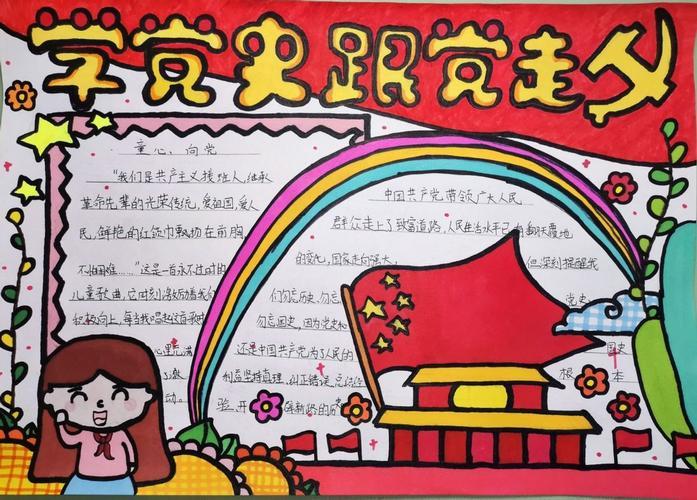 学党史跟党走
童心、向党
"我们是共产主义接班人,继承
革命先辈的光荣传统,爱祖国,爱人
民,鲜艳的红领巾飘扬在前胸,
不怕困难……"这是一首永不过时的
儿童歌曲,它时刻激励着我们
积极向上,每当我唱起这首歌时
心里充满
了激
动。
中国共产党带领广大人民
群众走上了致富道路,人民生活水平已有翻天覆地
的变化,国家走向强大,但深刻提醒我
们勿忘历史、勿忘党史
勿忘国史,因为党史和国史
还是中国共产党为了人民的根本
利益坚持真理,纠正错误,总结经
验,开
新路的历史